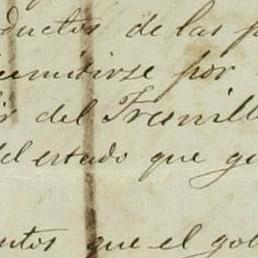 ductos de las p
umitirse por
r del Fresnillo
del estado que gu
ntos que el gob